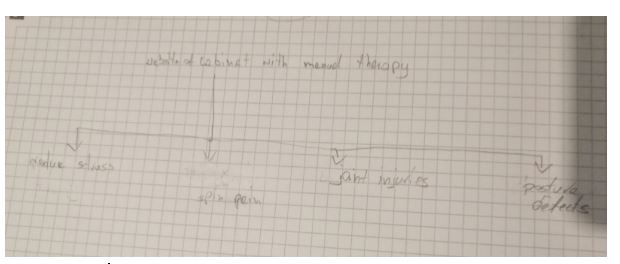 website of cabinet with manual therapy
reduce stress
spin pain
joint injuries
posture
defects